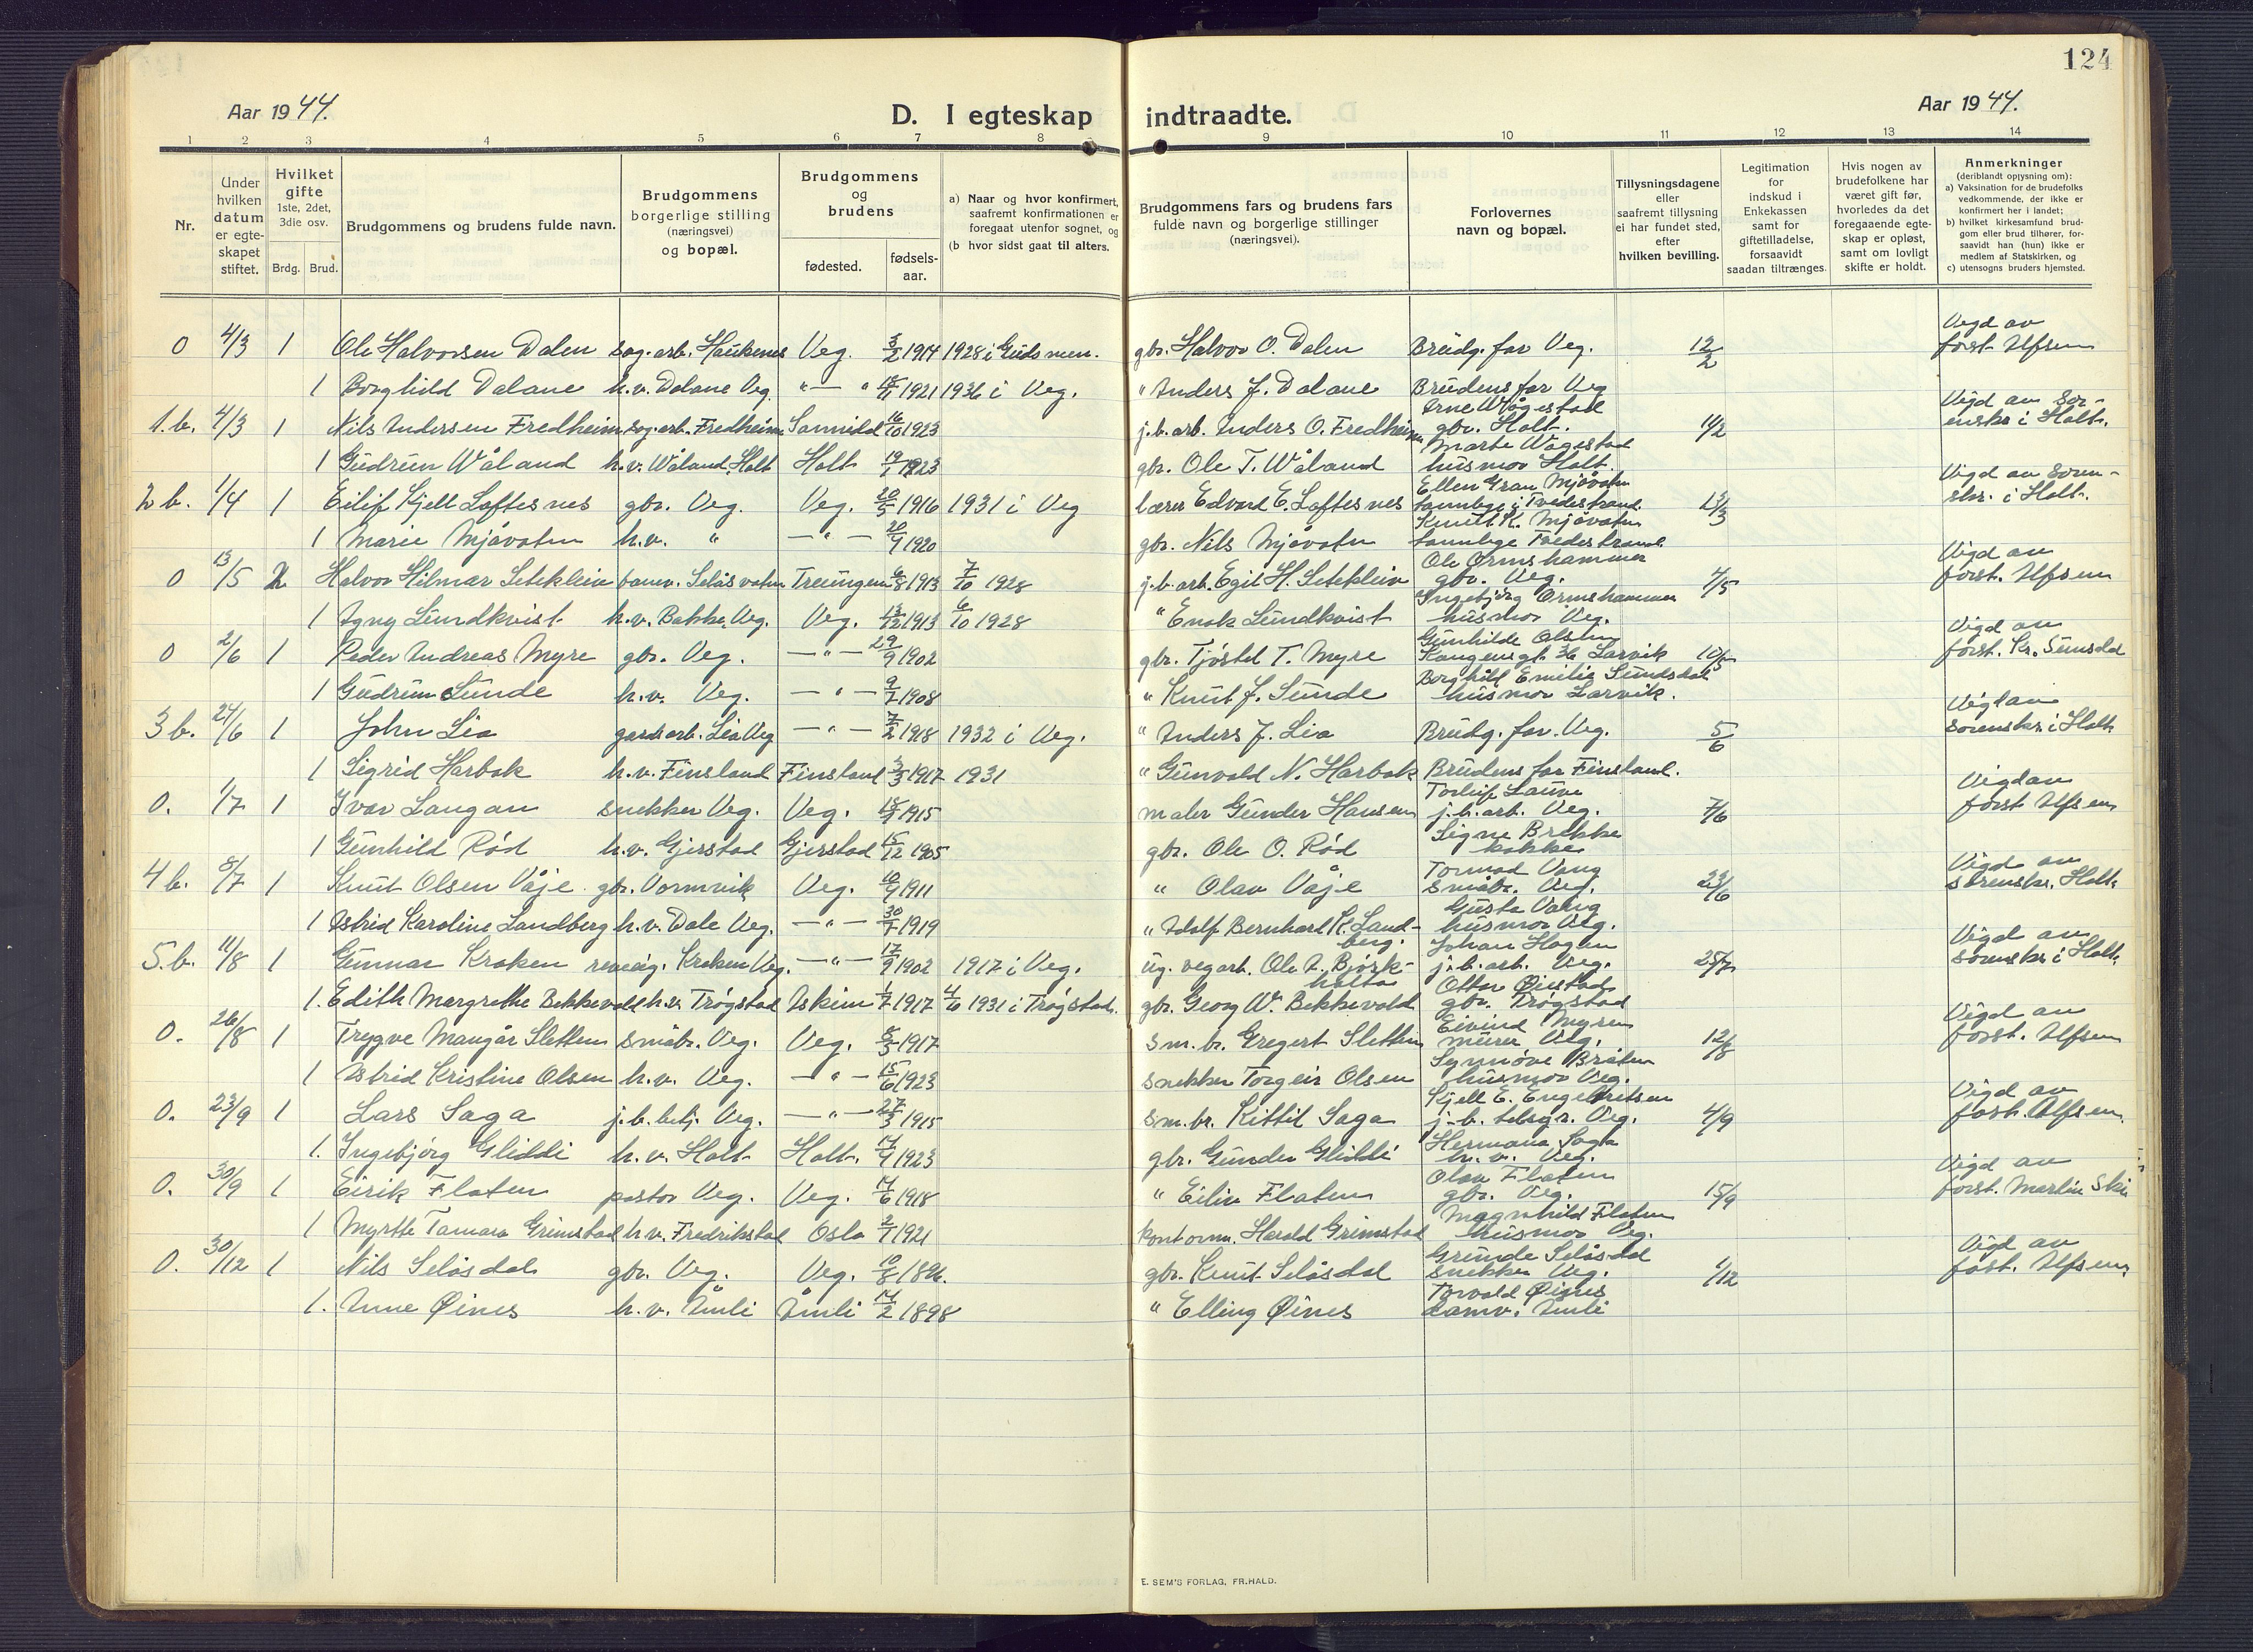 124
Aar 1944.
D. I egteskap indtraadte.
Aar 1944.
1 2 3 4 5 6 7 8 9 10 11 12 13 14
Nr.
Under hvilken datum er egte- skapet stiftet.
Hvilket gifte 1ste, 2det, 3die osv.
Brdg. Brud.
Brudgommens og brudens fulde navn.
Brudgommens borgerlige stilling (næringsvei) og bopæl.
Brudgommens og brudens
fødested.
fødsels- aar.
a) Naar og hvor konfirmert, saafremt konfirmationen er foregaat utenfor sognet, og
(b hvor sidst gaat til alters.
Brudgommens fars og brudens fars fulde navn og borgerlige stillinger (næringsvei).
Forlovernes navn og bopæl.
Tillysningsdagene eller saafremt tillysning ei har fundet sted, efter hvilken bevilling.
Legitimation for indskud i Enkekassen samt for giftetilladelse, forsaavidt saadan tiltrænges.
Hvis nogen av brudefolkene har været gift før, hvorledes da det foregaaende egte- skap er opløst, samt om lovligt skifte er holdt.
Anmerkninger (deriblandt opjysning om):
a) Vaksination for de brudefolks vedkommende, der ikke er konfirmert her i landet;
b) hvilket kirkesamfund brud- gom eller brud tilhører, for- saavidt han (hun) ikke er medlem af Statskirken, og
c) utensogns bruders hjemsted.
0 4/3 1 Ole Halvorsen Dalen sag.arb. Haukenes Veg. 3/2 1914 1928 i Gudsmen. gbr. Halvor O. Dalen Brudg. far Veg. 12/2 Vigd av forst. Alfsen
1 Borghild Dalane h.v. Dalane Veg. "—" 1921 1936 i Veg. " Anders J. Dalane Brudens far Veg
1.b. 4/3 1 Nils Andersen Fredheim sag.arb. Fredheim Sannidal 16/10 1923 j.b.arb. Anders O. Fredheim Arne Wågestad gbr. Holt. 14/2 Vigd av Sor- enskr i Holt.
1 Gudrun Wåland h.v. Wåland, Holt Holt 1923 gbr. Ole T. Wåland Marte Wågestad husmor Holt.
2 b. 1/4 1 Eilif Kjell Loftesnes gbr. Veg. Veg. 20/5 1916 1931 i Veg lærer Edvard E. Loftesnes Ellen Gran Mjåvatn tannlege i Tvedestrand. 13/3 Vigd av Soren- skr. i Holt.
1 Marie Mjåvatn h.v. " —"— 20/9 1920 gbr. Nils Mjåvatn Knut K. Mjåvatn tannlege Tvedestrand.
0 13/5 2 Halvor Hilmar Setekleiv banev. Selåsvatn Treungen 6/8 1913 7/10 1928 j.b.arb. Egil H. Setekleiv Ole Ormshammer gbr. Veg. 4/5 Vigd av forst. Alfsen
1 Agny Lundkvist h.v. Bakke, Veg. Veg. 13/12 1913 6/10 1928 " Enok Lundkvist Ingebjørg Ormshammer husmor Veg.
0 2/6 1 Peder Andreas Myre gbr. Veg. —"— 29/9 1902 gbr. Tjøstel T. Myre Gunhilde Olsen Kongensgt. 36 Larvik 10/5 Vigd av forst. Kr. Sundsdal
1 Gudrun Sunde h.v. Veg. —"— 9/7 1908 " Knut J. Sunde Borghild Emilie Sundsdal husmor Larvik.
3 b. 24/6 1 John Lia gardsarb. Lia Veg —"— 7/2 1918 1932 i Veg. " Anders J. Lia Brudg. far. Veg. 5/6 Vigd av sorenskr. i Holt
1 Sigrid Harbak h.v. Finsland Finsland 3/3 1917 1931 " Gunvald N. Harbak Brudens far Finsland.
0. 1/7 1 Ivar Langan snekker Veg. Veg. 1915 maler Gunder Hansen Torleif Lauve j.b.arb. Veg. 7/6 Vigd av forst. Alfsen
1 Gunhild Rød h.v. Gjerstad Gjerstad 15/12 1905 gbr. Ole O. Rød Signe Brekke kokke
4 b. 8/7 1 Knut Olsen Våje gbr. Vormvik Veg. 10/9 1911 " Olav Våje Tormod Vang småbr. Veg. 23/6 Vigd av sorenskr. Holt
1 Astrid Karoline Landberg h.v. Dale Veg. —"— 30/7 1919 " Adolf Bernhard K. Land- berg. Gusta Vang husmor Veg.
5.b. 11/8 1 Gunnar Kroken reveeig. Kroken Veg. —"— 17/9 1902 1917 i Veg. ug. vegarb. Ole A. Bjørk- holta Johan Hagen j.b.arb. Veg. 25/7 Vigd av sorenskr i Holt
1. Edith Margrethe Bekkevold h.v. Trøgstad Askim 1/7 1917 4/10 1931 i Trøgstad. gbr. Georg W. Bekkevold Ottar Øistad gbr. Trøgstad
0. 26/8 1 Trygve Mangår Sletten småbr. Veg. Veg. 8/3 1917 sm.br. Gregert Sletten Eivind Myren murer Veg. 12/8 Vigd av forst. Alfsen
1 Astrid Kristine Olsen h.v. Veg. —"— 15/6 1923 snekker Torgeir Olsen Synnøve Bråten husmor Veg.
0. 23/9 1 Lars Saga j.b.betj. Veg. —"— 27/3 1915 sm.br. Kittil Saga Kjell E. Engebretsen j.b. telegr. Veg. 4/9 Vigd av forst. Alfsen
1. Ingebjørg Gliddi h.v. Holt Holt. 1923 gbr. Gunder Gliddi Hermana Saga h.v. Veg.
0. 30/9 1 Eirik Flaten pastor Veg. Veg. 1918 " Eiliv Flaten Olav Flaten gbr. Veg. 15/9 Vigd av forst. Martin Ski
1 Myrtle Tamara Grimstad h.v. Fredrikstad Oslo 1921 kontorm. Harald Grimstad Magnhild Flaten husmor Veg.
0. 30/12 1 Nils Selåsdal gbr. Veg. Veg. 10/8 1896. gbr. Knut Selåsdal Grunde Selåsdal snekker Veg. 1/12 Vigd av forst. Alfsen
1. Anne Øines h.v. Åmli Åmli 14/2 1898 " Elling Øines Torvald Øines Åmli
E. SEM'S FORLAG, FR.HALD.